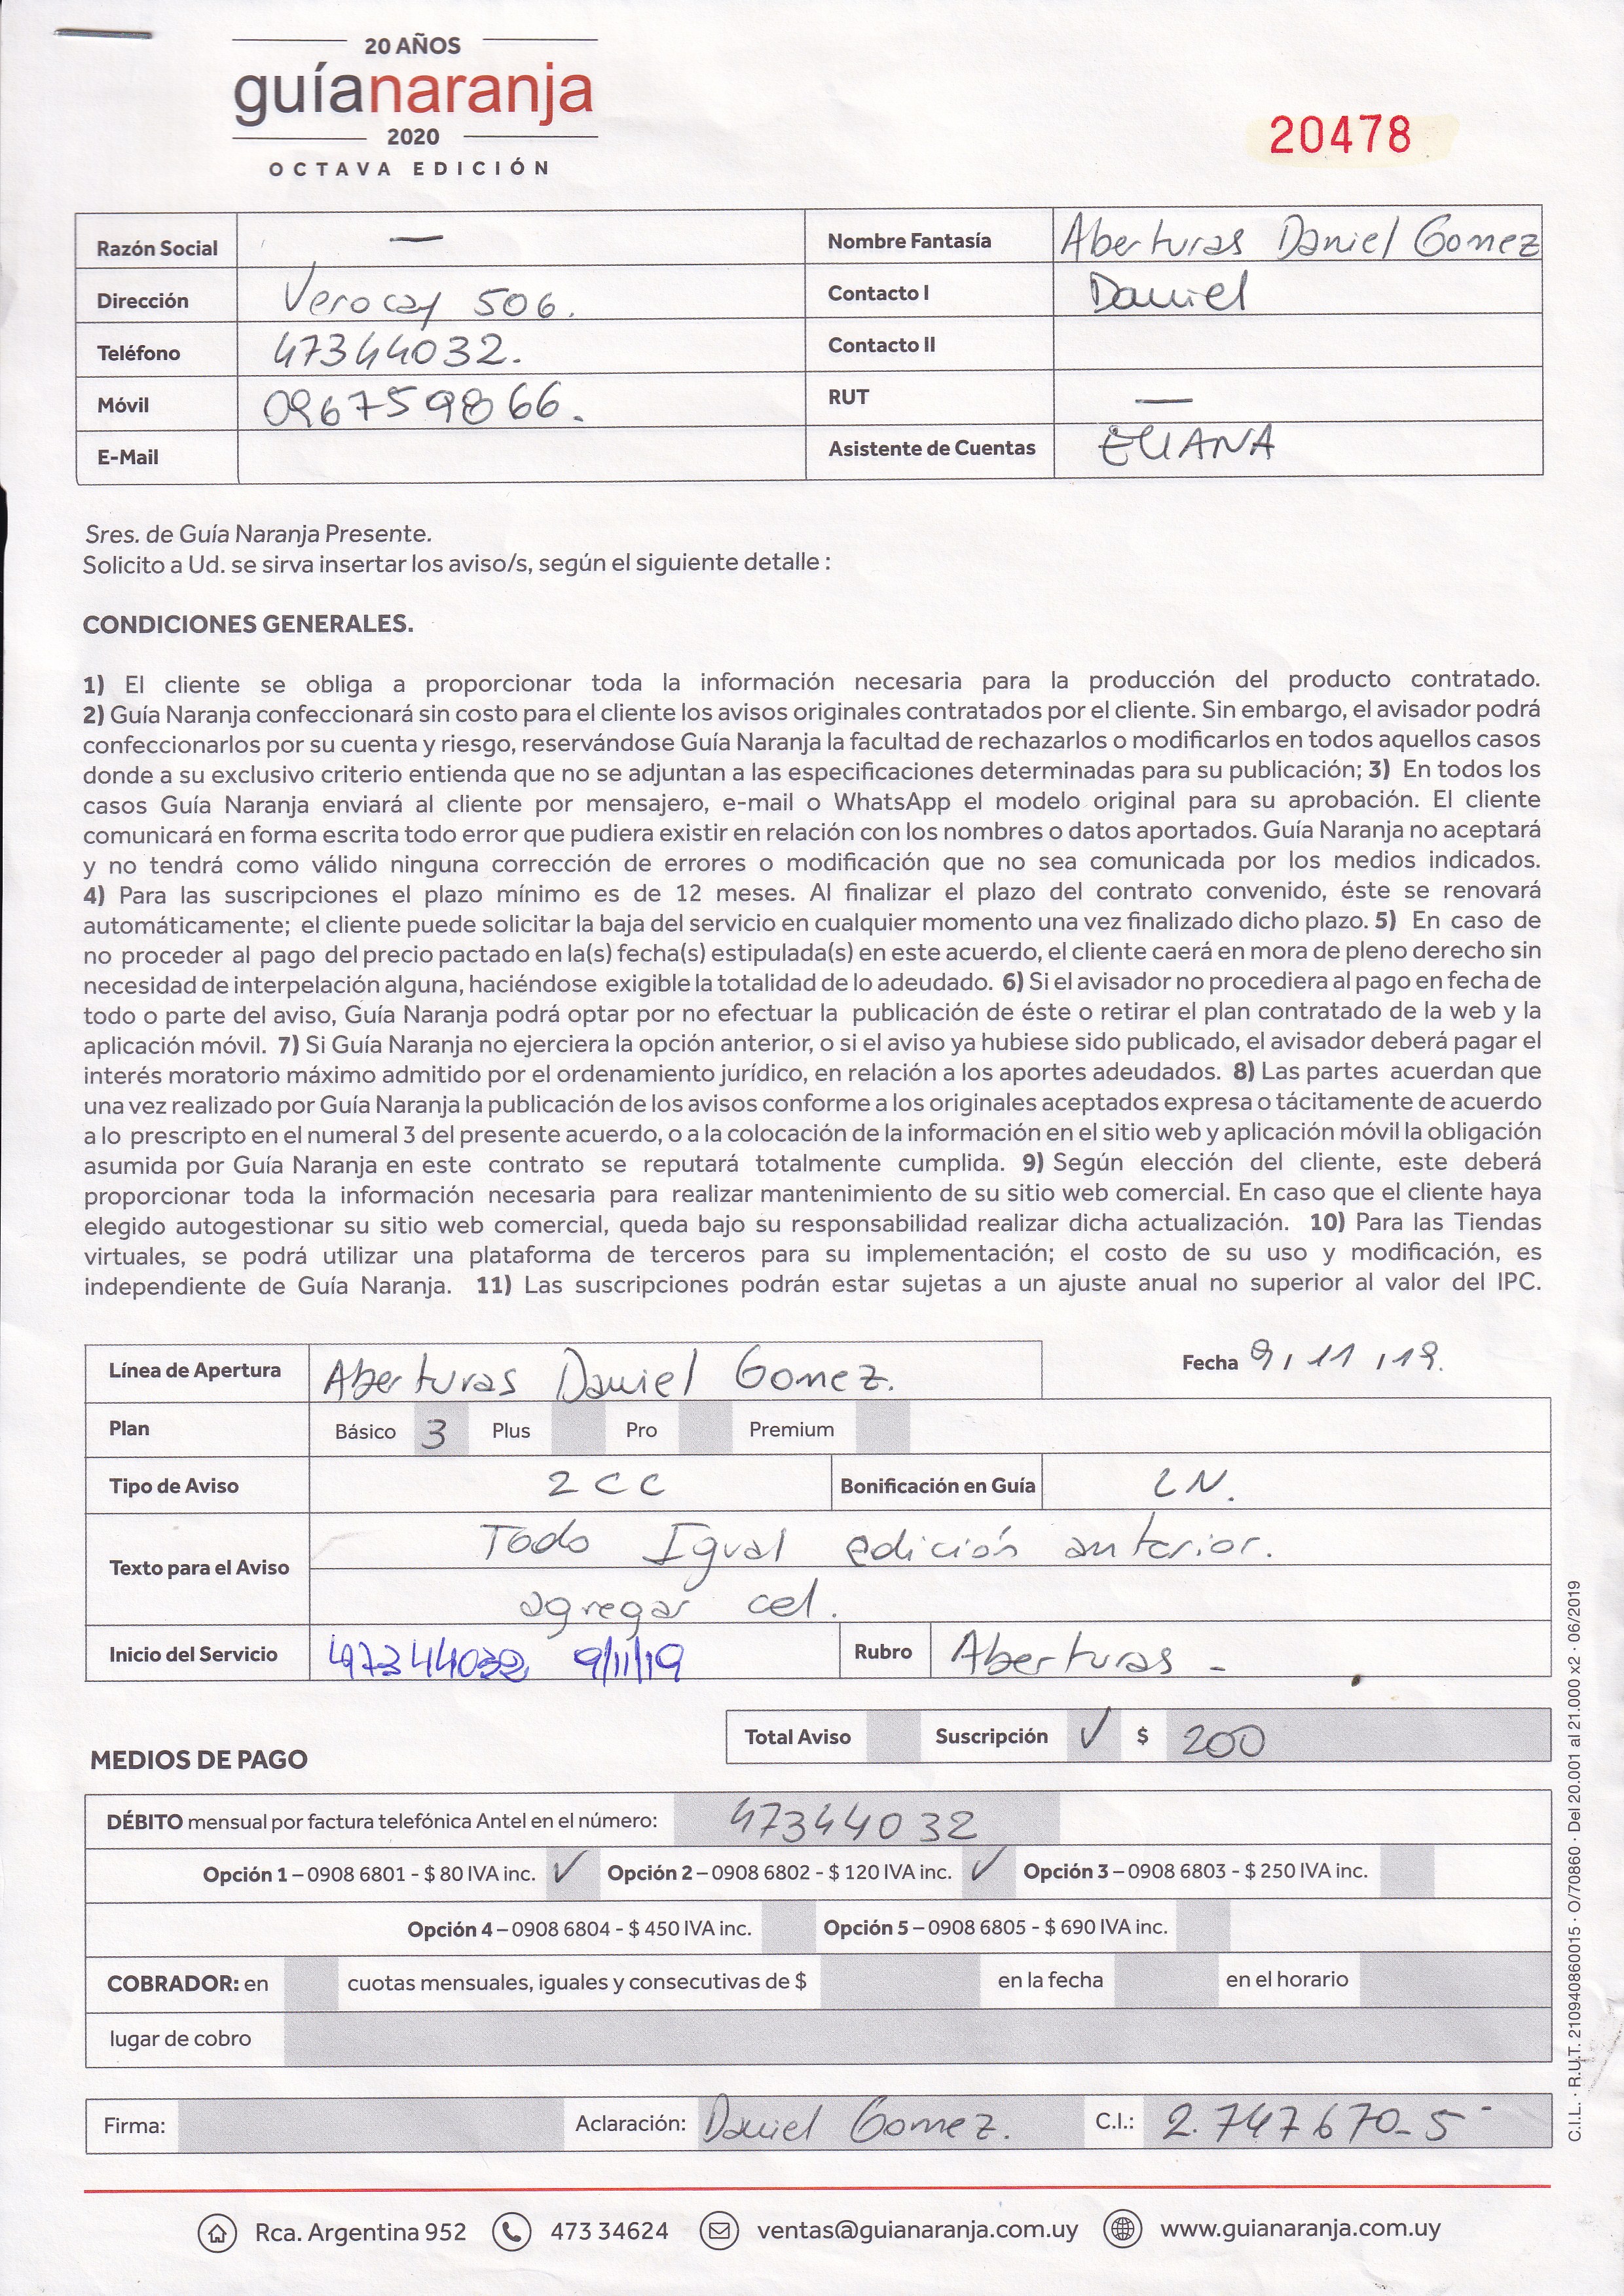 20 AÑOS
guíanaranja
2020
OCTAVA EDICIÓN
20478
Razón Social — Nombre Fantasía Aberturas Daniel Gomez
Dirección Verocay 506. Contacto I Daniel
Teléfono 47344032. Contacto II
Móvil 096759866. RUT —
E-Mail Asistente de Cuentas ELIANA
Sres. de Guía Naranja Presente.
Solicito a Ud. se sirva insertar los aviso/s, según el siguiente detalle :
CONDICIONES GENERALES.
1) El cliente se obliga a proporcionar toda la información necesaria para la producción del producto contratado.
2) Guía Naranja confeccionará sin costo para el cliente los avisos originales contratados por el cliente. Sin embargo, el avisador podrá
confeccionarlos por su cuenta y riesgo, reservándose Guía Naranja la facultad de rechazarlos o modificarlos en todos aquellos casos
donde a su exclusivo criterio entienda que no se adjuntan a las especificaciones determinadas para su publicación; 3) En todos los
casos Guía Naranja enviará al cliente por mensajero, e-mail o WhatsApp el modelo original para su aprobación. El cliente
comunicará en forma escrita todo error que pudiera existir en relación con los nombres o datos aportados. Guía Naranja no aceptará
y no tendrá como válido ninguna corrección de errores o modificación que no sea comunicada por los medios indicados.
4) Para las suscripciones el plazo mínimo es de 12 meses. Al finalizar el plazo del contrato convenido, éste se renovará
automáticamente; el cliente puede solicitar la baja del servicio en cualquier momento una vez finalizado dicho plazo. 5) En caso de
no proceder al pago del precio pactado en la(s) fecha(s) estipulada(s) en este acuerdo, el cliente caerá en mora de pleno derecho sin
necesidad de interpelación alguna, haciéndose exigible la totalidad de lo adeudado. 6) Si el avisador no procediera al pago en fecha de
todo o parte del aviso, Guía Naranja podrá optar por no efectuar la publicación de éste o retirar el plan contratado de la web y la
aplicación móvil. 7) Si Guía Naranja no ejerciera la opción anterior, o si el aviso ya hubiese sido publicado, el avisador deberá pagar el
interés moratorio máximo admitido por el ordenamiento jurídico, en relación a los aportes adeudados. 8) Las partes acuerdan que
una vez realizado por Guía Naranja la publicación de los avisos conforme a los originales aceptados expresa o tácitamente de acuerdo
a lo prescripto en el numeral 3 del presente acuerdo, o a la colocación de la información en el sitio web y aplicación móvil la obligación
asumida por Guía Naranja en este contrato se reputará totalmente cumplida. 9) Según elección del cliente, este deberá
proporcionar toda la información necesaria para realizar mantenimiento de su sitio web comercial. En caso que el cliente haya
elegido autogestionar su sitio web comercial, queda bajo su responsabilidad realizar dicha actualización. 10) Para las Tiendas
virtuales, se podrá utilizar una plataforma de terceros para su implementación; el costo de su uso y modificación, es
independiente de Guía Naranja. 11) Las suscripciones podrán estar sujetas a un ajuste anual no superior al valor del IPC.
Fecha 9/11/19.
Línea de Apertura Aberturas Daniel Gomez.
Plan Básico 3 Plus Pro Premium
Tipo de Aviso 2 CC Bonificación en Guía LN.
Texto para el Aviso Todo Igual edición anterior.
agregar cel.
Inicio del Servicio 47344032 9/11/19 Rubro Aberturas -
Total Aviso Suscripción ✓ $ 200
MEDIOS DE PAGO
DÉBITO mensual por factura telefónica Antel en el número: 47344032
Opción 1 – 0908 6801 - $ 80 IVA inc. ✓ Opción 2 – 0908 6802 - $ 120 IVA inc. ✓ Opción 3 – 0908 6803 - $ 250 IVA inc.
Opción 4 – 0908 6804 - $ 450 IVA inc. Opción 5 – 0908 6805 - $ 690 IVA inc.
COBRADOR: en cuotas mensuales, iguales y consecutivas de $ en la fecha en el horario
lugar de cobro
Firma: Aclaración: Daniel Gomez. C.I.: 2.747670-5
Rca. Argentina 952 473 34624 ventas@guianaranja.com.uy www.guianaranja.com.uy
C.I.L. · R.U.T. 210940860015 · O/70860 · Del 20.001 al 21.000 x2 · 06/2019